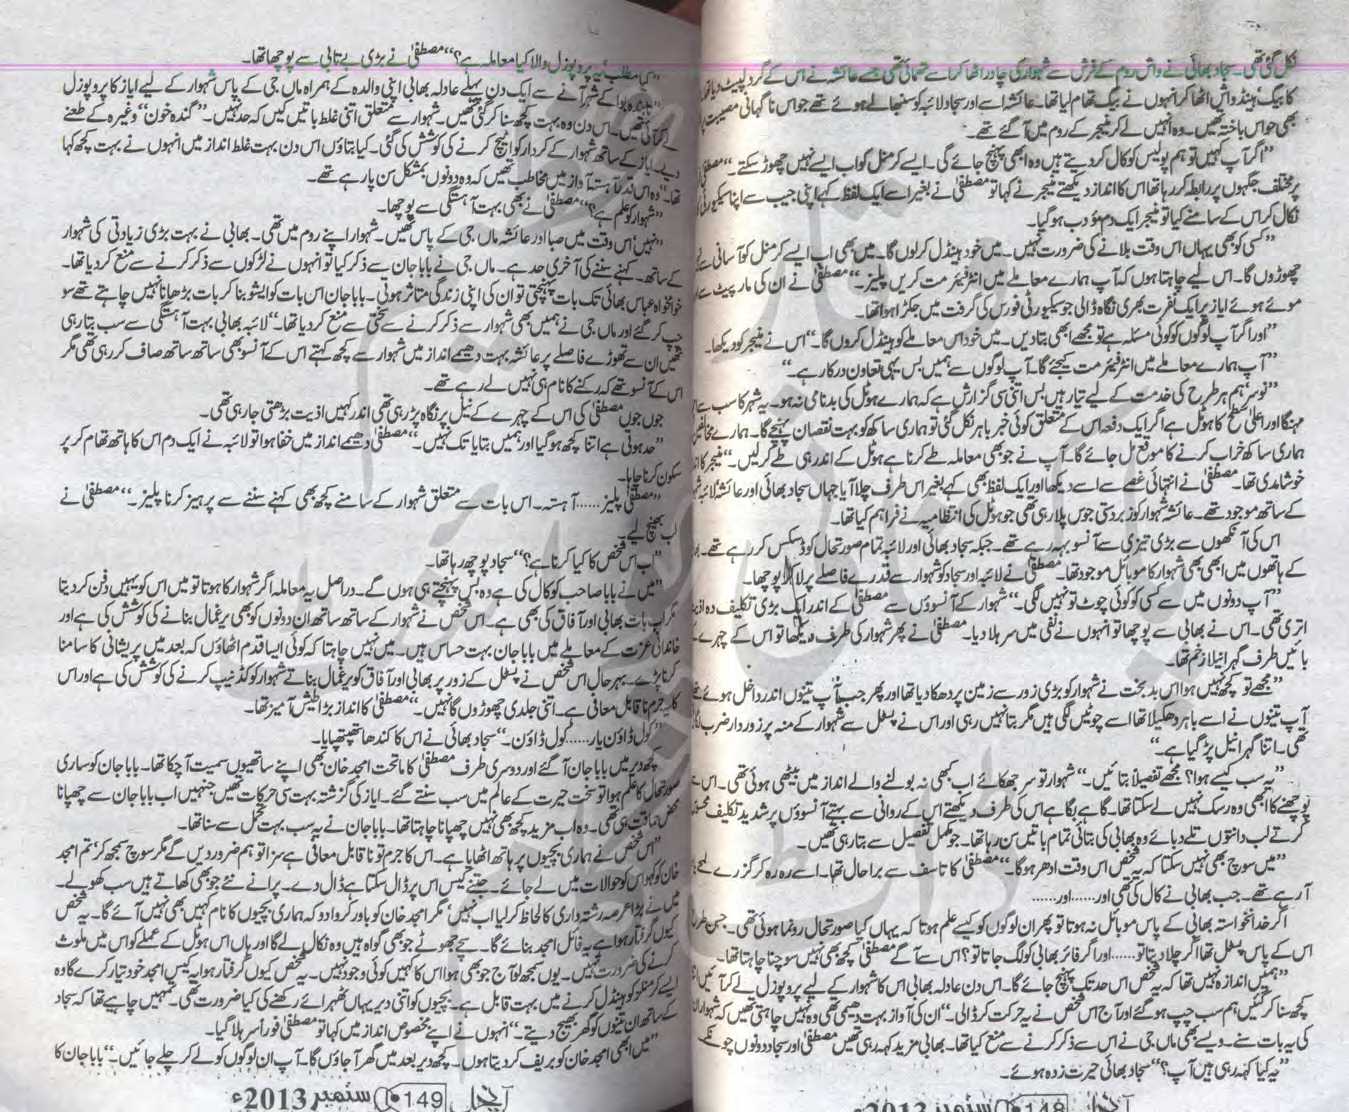 نکل گئی تھی۔ سجاد بھائی نے واش روم کے فرش سے شہوار کی چادر اٹھا کر اسے تھمائی تھی جسے عائشہ نے اس کے گرد لپیٹ دیا تھا
کا بیگ، ہینڈ واش اٹھا کر انہوں نے بیگ تھام لیا تھا۔ عائشہ اسے اور سجاد لائبہ کو سنبھالے ہوئے تھے جو اس ناگہانی مصیبت پر
بھی حواس باختہ تھیں۔ وہ انہیں لے کر منیجر کے روم میں آ گئے تھے۔
”اگر آپ کہیں تو ہم پولیس کو کال کر دیتے ہیں وہ ابھی پہنچ جائے گی۔ ایسے کرمنل کو اب ایسے نہیں چھوڑ سکتے۔“ مصطفیٰ
پر مختلف جگہوں پر رابطہ کر رہا تھا اس کا انداز دیکھتے منیجر نے کہا تو مصطفیٰ نے بغیر اسے ایک لفظ کہے اپنی جیب سے اپنا سیکیورٹی
نکال کر اس کے سامنے کیا تو منیجر ایک دم مؤدب ہو گیا۔
”کسی کو بھی یہاں اس وقت بلانے کی ضرورت نہیں۔ میں خود ہینڈل کر لوں گا۔ میں بھی اب ایسے کرمنل کو آسانی سے
چھوڑوں گا۔ اس لیے چاہتا ہوں کہ آپ ہمارے معاملے میں انٹرفیئر مت کریں پلیز۔“ مصطفیٰ نے ان کی مار پیٹ سے
موئے ہوئے ایاز پر ایک نفرت بھری نگاہ ڈالی جو سیکیورٹی فورس کی گرفت میں جکڑا ہوا تھا۔
”اور اگر آپ لوگوں کو کوئی مسئلہ ہے تو مجھے ابھی بتا دیں۔ میں خود اس معاملے کو ہینڈل کروں گا۔“ اس نے منیجر کو دیکھا۔
”آپ ہمارے معاملے میں انٹرفیئر مت کیجئے گا۔ آپ لوگوں سے ہمیں بس یہی تعاون درکار ہے۔“
”نو سر، ہم ہر طرح کی خدمت کے لیے تیار ہیں بس اتنی سی گزارش ہے کہ ہمارے ہوٹل کی بدنامی نہ ہو۔ یہ شہر کا سب سے
مہنگا اور اعلیٰ سطح کا ہوٹل ہے اگر ایک دفعہ اس کے متعلق کوئی خبر باہر نکل گئی تو ہماری ساکھ کو بہت نقصان پہنچے گا۔ ہمارے مخالفین
ہماری ساکھ خراب کرنے کا موقع مل جائے گا۔ آپ نے جو بھی معاملہ طے کرنا ہے ہوٹل کے اندر ہی طے کر لیں۔“ منیجر کا
خوشامدی تھا۔ مصطفیٰ نے انتہائی غصے سے اسے دیکھا اور ایک لفظ بھی کہے بغیر اس طرف چلا آیا جہاں سجاد بھائی اور عائشہ لائبہ
کے ساتھ موجود تھے۔ عائشہ شہوار کو زبردستی جوس پلا رہی تھی جو ہوٹل کی انتظامیہ نے فراہم کیا تھا۔
اس کی آنکھوں سے بڑی تیزی سے آنسو بہہ رہے تھے۔ جبکہ سجاد بھائی اور لائبہ تمام صورتحال کو ڈسکس کر رہے تھے۔
کے ہاتھوں میں ابھی بھی شہوار کا موبائل موجود تھا۔ مصطفیٰ نے لائبہ اور سجاد کو شہوار سے قدرے فاصلے پر لا کر پوچھا۔
”آپ دونوں میں سے کسی کو کوئی چوٹ تو نہیں لگی۔“ شہوار کے آنسوؤں سے مصطفیٰ کے اندر ایک بڑی تکلیف دہ
اتری تھی۔ اس نے بھابی سے پوچھا تو انہوں نے نفی میں سر ہلا دیا۔ مصطفیٰ نے پھر شہوار کی طرف دیکھا تو اس کے چہرے
بائیں طرف گہرا نیلا زخم تھا۔
”مجھے تو کچھ نہیں ہوا اس بدبخت نے شہوار کو بڑی زور سے زمین پر دھکا دیا تھا اور پھر جب آپ تینوں اندر داخل ہوئے
آپ تینوں نے اسے باہر دھکیلا تھا اسے چوٹیں لگی ہیں مگر بتا نہیں رہی اور اس نے پسٹل سے شہوار کے منہ پر زوردار ضرب
تھی۔ اتنا گہرا نیل پڑ گیا ہے۔“
”یہ سب کیسے ہوا؟ مجھے تفصیلاً بتائیں۔“ شہوار تو سر جھکائے اب بھی نہ بولنے والے انداز میں بیٹھی ہوئی تھی۔ اس
پوچھنے کا ابھی وہ رسک نہیں لے سکتا تھا۔ گاہے بگاہے اس کی طرف دیکھتے اس کے روانی سے بہتے آنسوؤں پر شدید تکلیف
کرتے لب دانتوں تلے دبائے وہ بھابی کی بتائی تمام باتیں سن رہا تھا۔ جو مکمل تفصیل سے بتا رہی تھیں۔
”میں سوچ بھی نہیں سکتا کہ یہ شخص اس وقت ادھر ہوگا۔“ مصطفیٰ کا تاسف سے برا حال تھا۔ اسے رہ رہ کر گزرے لمحے
آ رہے تھے۔ جب بھابی نے کال کی تھی اور......اور......
اگر خدانخواستہ بھابی کے پاس موبائل نہ ہوتا تو پھر ان لوگوں کو کیسے علم ہوتا کہ یہاں کیا صورتحال رونما ہوئی تھی۔ جس طرح
اس کے پاس پسٹل تھا اگر چلا دیتا تو......اور اگر فائر بھابی کو لگ جاتا تو؟ اس سے آگے مصطفیٰ کچھ بھی نہیں سوچنا چاہتا تھا۔
”ہمیں اندازہ نہیں تھا کہ یہ شخص اس حد تک پہنچ جائے گا۔ اس دن عادلہ بھابی اس کا شہوار کے لیے پروپوزل لے کر آئیں
کچھ سنا کر گئیں، ہم سب چپ ہو گئے اور آج اس شخص نے یہ حرکت کر ڈالی۔“ ان کی آواز بہت دھیمی تھی وہ نہیں چاہتی تھیں کہ شہوار
کی یہ بات سنے۔ ویسے بھی ماں جی نے اس سے ذکر کرنے سے منع کیا تھا۔ بھابی مزید کہہ رہی تھیں مصطفیٰ اور سجاد دونوں چونکے
”یہ کیا کہہ رہی ہیں آپ؟“ سجاد بھائی حیرت زدہ ہوئے۔
آنچل 148 ستمبر 2013ء
”کیا مطلب یہ پروپوزل والا کیا معاملہ ہے؟“ مصطفیٰ نے بڑی بے تابی سے پوچھا تھا۔
کے شہر آنے سے ایک دن پہلے عادلہ بھابی اپنی والدہ کے ہمراہ ماں جی کے پاس شہوار کے لیے ایاز کا پروپوزل
لے کر آئی تھیں۔ اس دن وہ بہت کچھ سنا کر گئی تھیں۔ شہوار سے متعلق اتنی غلط باتیں کیں کہ حد نہیں۔ ”گندہ خون“ وغیرہ کے طعنے
دیے۔ ایاز کے ساتھ شہوار کے کردار کو اٹیچ کرنے کی کوشش کی گئی۔ کیا بتاؤں اس دن بہت غلط انداز میں انہوں نے بہت کچھ کہا
تھا۔“ وہ اس قدر آہستہ آواز میں مخاطب تھیں کہ وہ دونوں بمشکل سن پا رہے تھے۔
”شہوار کو علم ہے؟“ مصطفیٰ نے بھی بہت آہستگی سے پوچھا۔
”نہیں، اس وقت میں صبا اور عائشہ ماں جی کے پاس تھیں۔ شہوار اپنے روم میں تھی۔ بھابی نے بہت بڑی زیادتی کی شہوار
کے ساتھ۔ کہنے سننے کی آخری حد ہے۔ ماں جی نے بابا جان سے ذکر کیا تو انہوں نے لڑکوں سے ذکر کرنے سے منع کر دیا تھا۔
خوامخواہ عباس بھائی تک بات پہنچتی تو ان کی اپنی زندگی متاثر ہوتی۔ بابا جان اس بات کو ایشو بنا کر بات بڑھانا نہیں چاہتے تھے سو
چپ کر گئے اور ماں جی نے ہمیں بھی شہوار سے ذکر کرنے سے سختی سے منع کر دیا تھا۔“ لائبہ بھابی بہت آہستگی سے سب بتا رہی
تھیں ان سے تھوڑے فاصلے پر عائشہ بہت دھیمے انداز میں شہوار سے کچھ کہتے اس کے آنسو بھی ساتھ ساتھ صاف کر رہی تھی مگر
اس کے آنسو تھے کہ رکنے کا نام ہی نہیں لے رہے تھے۔
جوں جوں مصطفیٰ کی اس کے چہرے کے نیل پر نگاہ پڑ رہی تھی اندر کہیں اذیت بڑھتی جا رہی تھی۔
”حد ہوتی ہے اتنا کچھ ہو گیا اور ہمیں بتایا تک نہیں۔“ مصطفیٰ دھیمے انداز میں خفا ہوا تو لائبہ نے ایک دم اس کا ہاتھ تھام کر پر
سکون کرنا چاہا۔
”مصطفیٰ پلیز......آہستہ۔ اس بات سے متعلق شہوار کے سامنے کچھ بھی کہنے سننے سے پرہیز کرنا پلیز۔“ مصطفیٰ نے
لب بھینچ لیے۔
”اب اس شخص کا کیا کرنا ہے؟“ سجاد پوچھ رہا تھا۔
”میں نے بابا صاحب کو کال کی ہے وہ بس پہنچتے ہی ہوں گے۔ دراصل یہ معاملہ اگر شہوار کا ہوتا تو میں اس کو یہیں دفن کر دیتا
مگر اب بات بھابی اور آفاق کی بھی ہے۔ اس شخص نے شہوار کے ساتھ ساتھ ان دونوں کو بھی یرغمال بنانے کی کوشش کی ہے اور
خاندانی عزت کے معاملے میں بابا جان بہت حساس ہیں۔ میں نہیں چاہتا کہ کوئی ایسا قدم اٹھاؤں کہ بعد میں پریشانی کا سامنا
کرنا پڑے۔ بہرحال اس شخص نے پسٹل کے زور پر بھابی اور آفاق کو یرغمال بناتے شہوار کو کڈنیپ کرنے کی کوشش کی ہے اور اس
کا یہ جرم ناقابل معافی ہے۔ اتنی جلدی چھوڑوں گا نہیں۔“ مصطفیٰ کا انداز بڑا طیش آمیز تھا۔
”کول ڈاؤن یار......کول ڈاؤن۔“ سجاد بھائی نے اس کا کندھا تھپتھپایا۔
کچھ دیر میں بابا جان آ گئے اور دوسری طرف مصطفیٰ کا ماتحت امجد خان بھی اپنے ساتھیوں سمیت آ چکا تھا۔ بابا جان کو ساری
صورتحال کا علم ہوا تو سخت حیرت کے عالم میں سب سنتے گئے۔ ایاز کی گزشتہ بہت سی حرکات تھیں جنہیں اب بابا جان سے چھپانا
محض حماقت ہی تھی۔ وہ اب مزید کچھ بھی نہیں چھپانا چاہتا تھا۔ بابا جان نے یہ سب بہت تحمل سے سنا تھا۔
”اس شخص نے ہماری بچیوں پر ہاتھ اٹھایا ہے۔ اس کا جرم تو ناقابل معافی ہے سزا تو ہم ضرور دیں گے مگر سوچ سمجھ کر، تم امجد
خان کو کہو اس کو حوالات میں لے جائے۔ جتنے کیس اس پر ڈال سکتا ہے ڈال دے۔ پرانے نئے جو بھی کھاتے ہیں سب کھولے۔
میں نے بڑا عرصہ رشتہ داری کا لحاظ کر لیا اب نہیں، مگر امجد خان کو باور کروا دو کہ ہماری بچیوں کا نام کہیں بھی نہیں آئے گا۔ یہ شخص
کیوں گرفتار ہوا ہے یہ فائل امجد بنائے گا۔ سچے جھوٹے جو بھی گواہ ہیں وہ نکال لے گا اور ہاں اس ہوٹل کے عملے کو اس میں ملوث
کرنے کی ضرورت نہیں۔ یوں سمجھ لو آج جو بھی ہوا اس کا کہیں کوئی وجود نہیں۔ یہ شخص کیوں گرفتار ہوا یہ کیس امجد خود تیار کرے گا وہ
ایسے کرمنلز کو ہینڈل کرنے میں بہت قابل ہے۔ بچیوں کو اتنی دیر یہاں ٹھہرائے رکھنے کی کیا ضرورت تھی۔ تمہیں چاہیے تھا کہ سجاد
کے ساتھ ان تینوں کو گھر بھیج دیتے۔“ انہوں نے اپنے مخصوص انداز میں کہا تو مصطفیٰ فوراً سر ہلا گیا۔
”میں ابھی امجد خان کو بریف کر دیتا ہوں۔ کچھ دیر بعد میں گھر آ جاؤں گا۔ آپ ان لوگوں کو لے کر چلے جائیں۔“ بابا جان کا
آنچل 149 ستمبر 2013ء